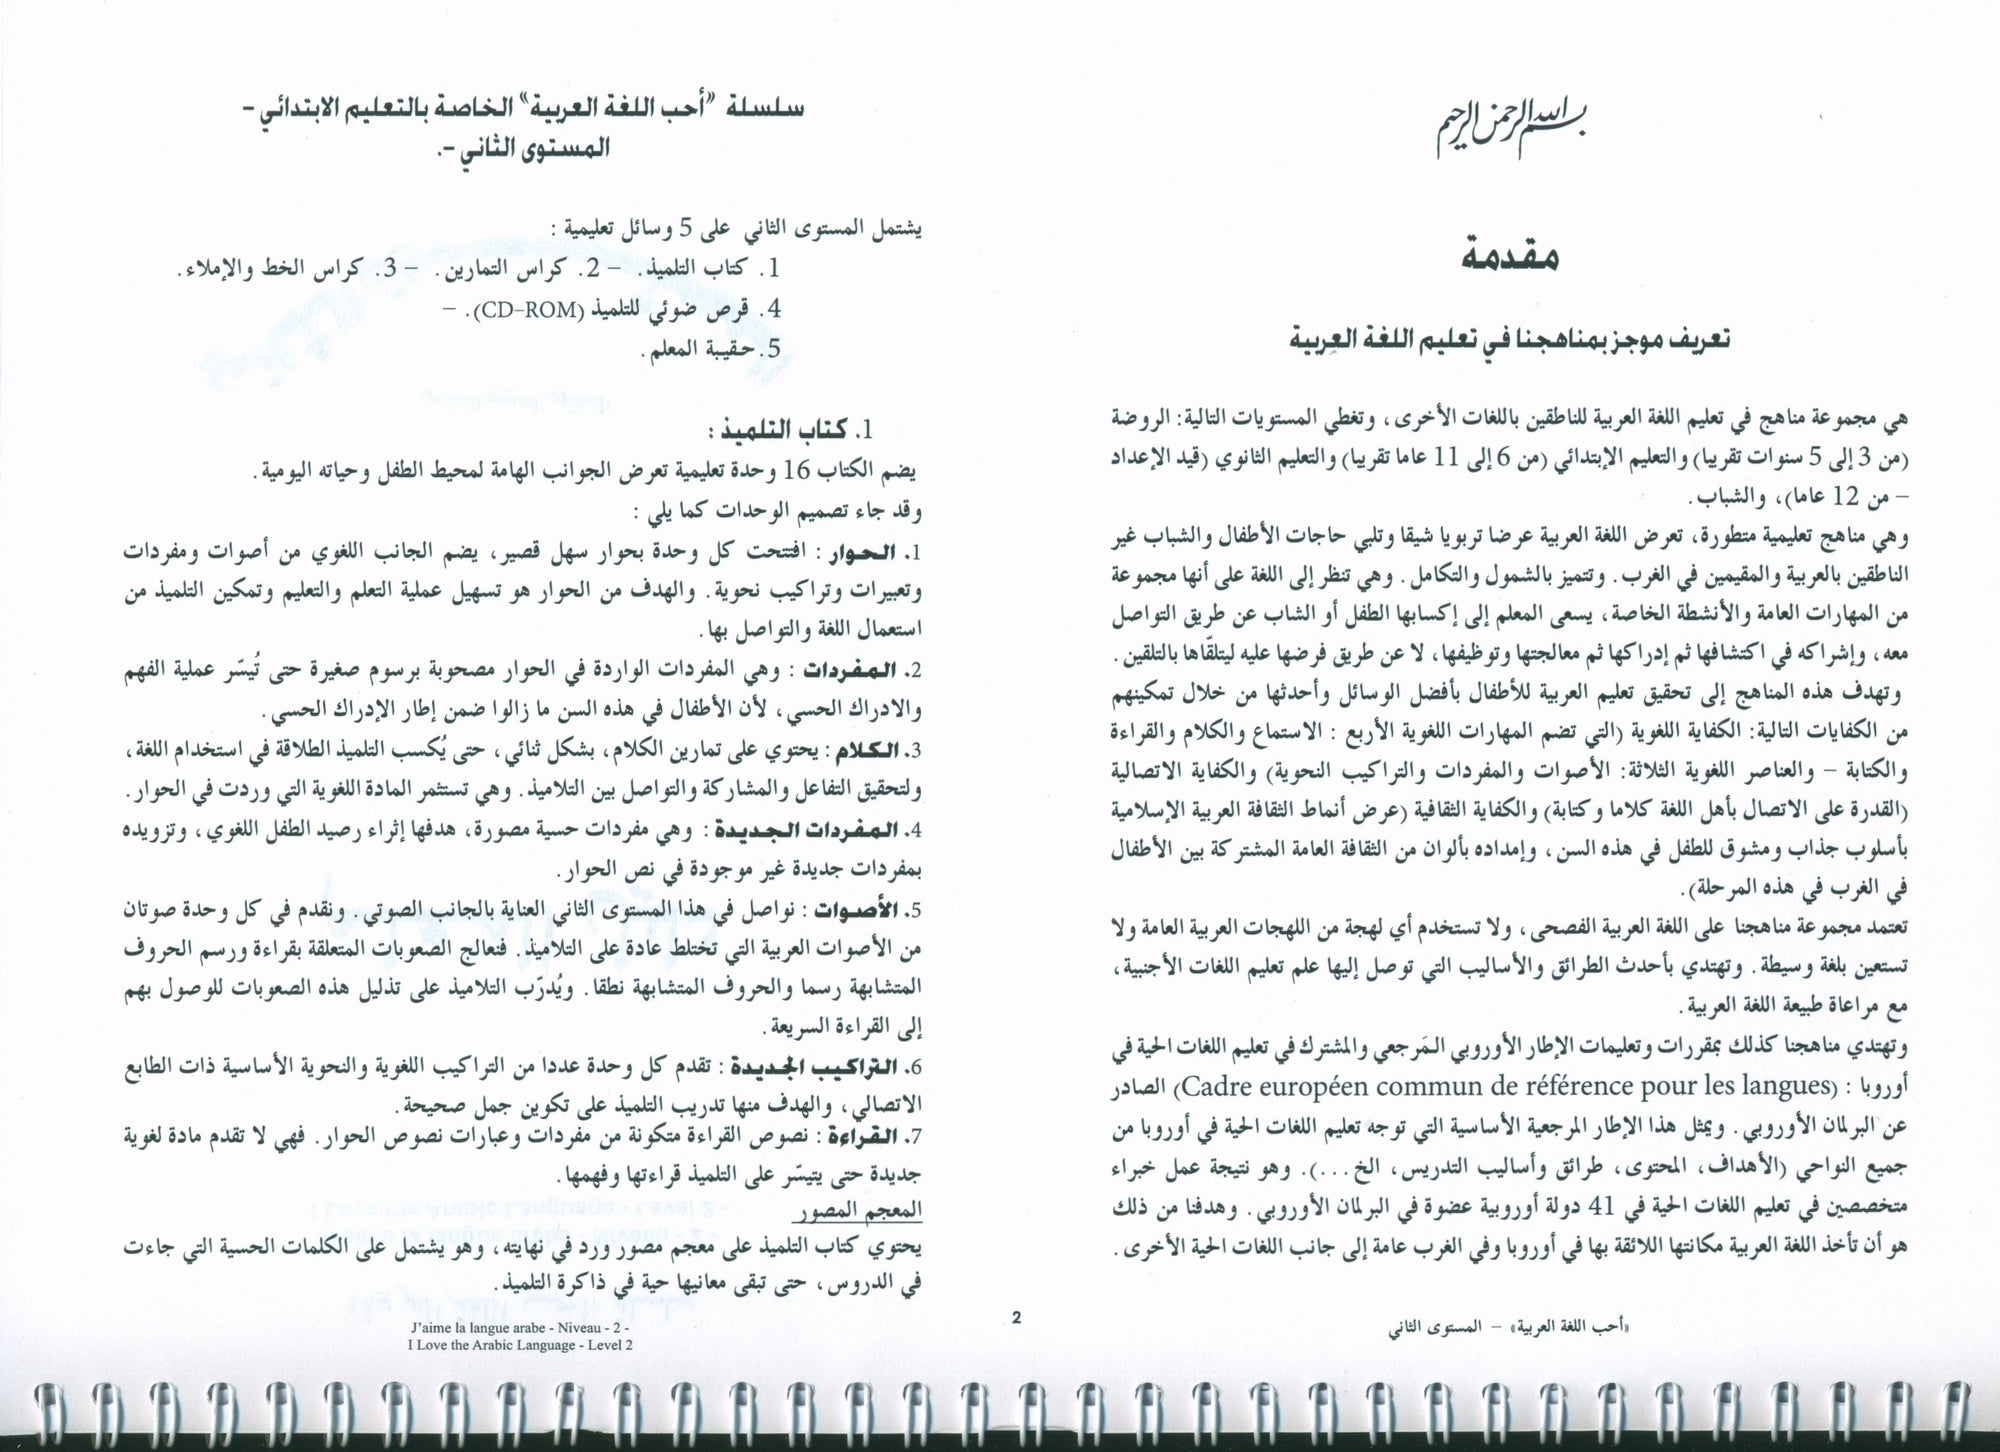 بسم الله الرحمن الرحيم
مقدمة
تعريف موجز بمناهجنا في تعليم اللغة العربية
هي مجموعة مناهج في تعليم اللغة العربية للناطقين باللغات الأخرى، وتغطي المستويات التالية: الروضة
(من 3 إلى 5 سنوات تقريبا) والتعليم الإبتدائي (من 6 إلى 11 عاما تقريبا) والتعليم الثانوي (قيد الإعداد
– من 12 عاما)، والشباب.
وهي مناهج تعليمية متطورة، تعرض اللغة العربية عرضا تربويا شيقا وتلبي حاجات الأطفال والشباب غير
الناطقين بالعربية والمقيمين في الغرب. وتتميز بالشمول والتكامل. وهي تنظر إلى اللغة على أنها مجموعة
من المهارات العامة والأنشطة الخاصة، يسعى المعلم إلى إكسابها الطفل أو الشاب عن طريق التواصل
معه، وإشراكه في اكتشافها ثم إدراكها ثم معالجتها وتوظيفها، لا عن طريق فرضها عليه ليتلقّاها بالتلقين.
وتهدف هذه المناهج إلى تحقيق تعليم العربية للأطفال بأفضل الوسائل وأحدثها من خلال تمكينهم
من الكفايات التالية: الكفاية اللغوية (التي تضم المهارات اللغوية الأربع : الاستماع والكلام والقراءة
والكتابة – والعناصر اللغوية الثلاثة: الأصوات والمفردات والتراكيب النحوية) والكفاية الاتصالية
(القدرة على الاتصال بأهل اللغة كلاما وكتابة) والكفاية الثقافية (عرض أنماط الثقافة العربية الإسلامية
بأسلوب جذاب ومشوق للطفل في هذه السن، وإمداده بألوان من الثقافة العامة المشتركة بين الأطفال
في الغرب في هذه المرحلة).
تعتمد مجموعة مناهجنا على اللغة العربية الفصحى، ولا تستخدم أي لهجة من اللهجات العربية العامة ولا
تستعين بلغة وسيطة. وتهتدي بأحدث الطرائق والأساليب التي توصل إليها علم تعليم اللغات الأجنبية،
مع مراعاة طبيعة اللغة العربية.
وتهتدي مناهجنا كذلك بمقررات وتعليمات الإطار الأوروبي المَرجعي والمشترك في تعليم اللغات الحية في
أوروبا : (Cadre européen commun de référence pour les langues) الصادر
عن البرلمان الأوروبي. ويمثل هذا الإطار المرجعية الأساسية التي توجه تعليم اللغات الحية في أوروبا من
جميع النواحي (الأهداف، المحتوى، طرائق وأساليب التدريس، الخ...). وهو نتيجة عمل خبراء
متخصصين في تعليم اللغات الحية في 41 دولة أوروبية عضوة في البرلمان الأوروبي. وهدفنا من ذلك
هو أن تأخذ اللغة العربية مكانتها اللائقة بها في أوروبا وفي الغرب عامة إلى جانب اللغات الحية الأخرى.
«أحب اللغة العربية» – المستوى الثاني
2
سلسلة "أحب اللغة العربية" الخاصة بالتعليم الابتدائي –
المستوى الثاني –.
يشتمل المستوى الثاني على 5 وسائل تعليمية :
1. كتاب التلميذ. – 2. كراس التمارين. – 3. كراس الخط والإملاء.
4. قرص ضوئي للتلميذ (CD-ROM). –
5. حقيبة المعلم.
1. كتاب التلميذ :
يضم الكتاب 16 وحدة تعليمية تعرض الجوانب الهامة لمحيط الطفل وحياته اليومية.
وقد جاء تصميم الوحدات كما يلي :
1. الحوار : افتتحت كل وحدة بحوار سهل قصير، يضم الجانب اللغوي من أصوات ومفردات
وتعبيرات وتراكيب نحوية. والهدف من الحوار هو تسهيل عملية التعلم والتعليم وتمكين التلميذ من
استعمال اللغة والتواصل بها.
2. المفردات : وهي المفردات الواردة في الحوار مصحوبة برسوم صغيرة حتى تُيسّر عملية الفهم
والادراك الحسي، لأن الأطفال في هذه السن ما زالوا ضمن إطار الإدراك الحسي.
3. الكلام : يحتوي على تمارين الكلام، بشكل ثنائي، حتى يُكسب التلميذ الطلاقة في استخدام اللغة،
ولتحقيق التفاعل والمشاركة والتواصل بين التلاميذ. وهي تستثمر المادة اللغوية التي وردت في الحوار.
4. المفردات الجديدة : وهي مفردات حسية مصورة، هدفها إثراء رصيد الطفل اللغوي، وتزويده
بمفردات جديدة غير موجودة في نص الحوار.
5. الأصوات : نواصل في هذا المستوى الثاني العناية بالجانب الصوتي. ونقدم في كل وحدة صوتان
من الأصوات العربية التي تختلط عادة على التلاميذ. فنعالج الصعوبات المتعلقة بقراءة ورسم الحروف
المتشابهة رسما والحروف المتشابهة نطقا. ويُدرّب التلاميذ على تذليل هذه الصعوبات للوصول بهم
إلى القراءة السريعة.
6. التراكيب الجديدة : تقدم كل وحدة عددا من التراكيب اللغوية والنحوية الأساسية ذات الطابع
الاتصالي، والهدف منها تدريب التلميذ على تكوين جمل صحيحة.
7. القراءة : نصوص القراءة متكونة من مفردات وعبارات نصوص الحوار. فهي لا تقدم مادة لغوية
جديدة حتى يتيسّر على التلميذ قراءتها وفهمها.
المعجم المصور
يحتوي كتاب التلميذ على معجم مصور ورد في نهايته، وهو يشتمل على الكلمات الحسية التي جاءت
في الدروس، حتى تبقى معانيها حية في ذاكرة التلميذ.
J'aime la langue arabe - Niveau - 2 -
I Love the Arabic Language - Level 2